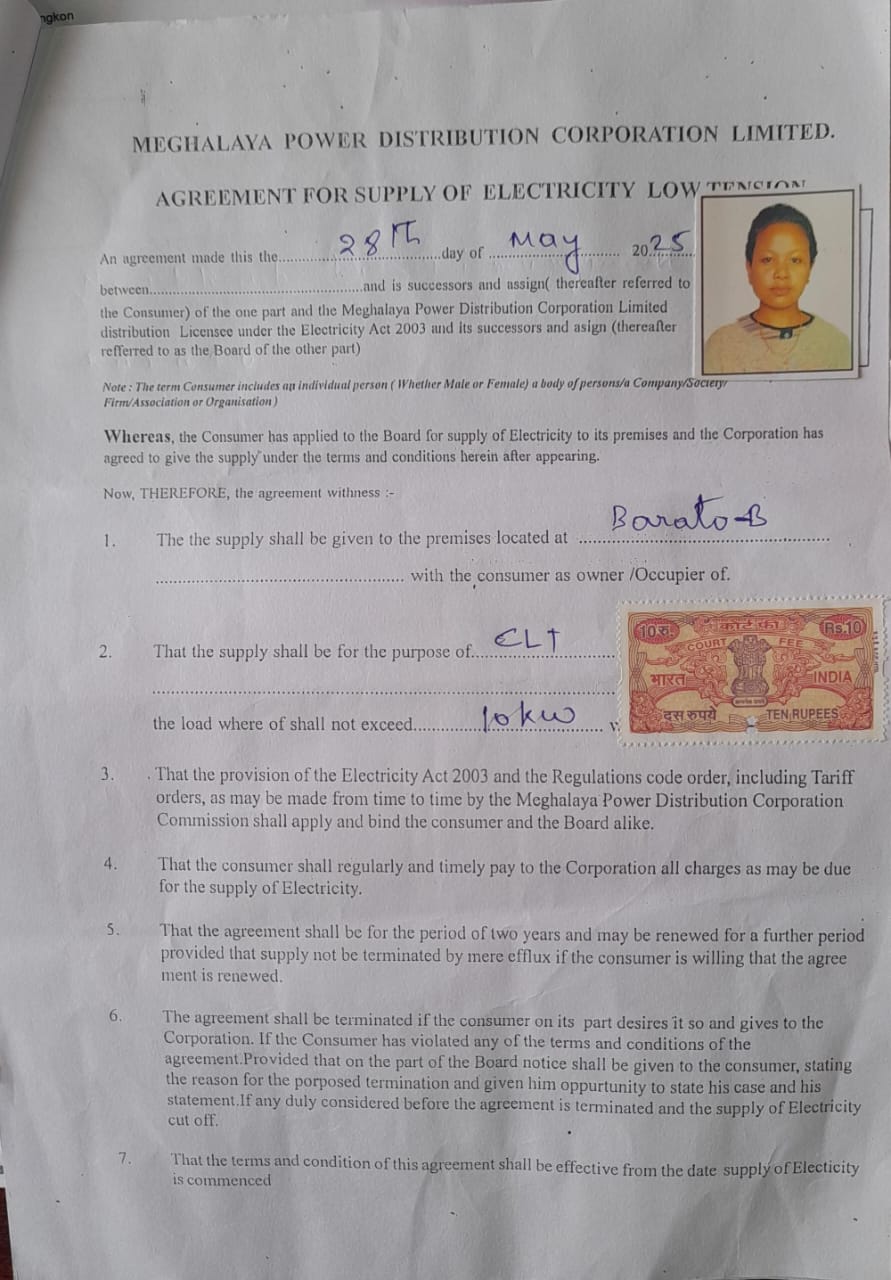 ngkon
MEGHALAYA POWER DISTRIBUTION CORPORATION LIMITED.
AGREEMENT FOR SUPPLY OF ELECTRICITY LOW TENSION
An agreement made this the............28th............day of ......May............ 2025
between.................................................and is successors and assign( thereafter referred to
the Consumer) of the one part and the Meghalaya Power Distribution Corporation Limited
distribution Licensee under the Electricity Act 2003 and its successors and asign (thereafter
refferred to as the Board of the other part)
Note : The term Consumer includes an individual person ( Whether Male or Female) a body of persons/a Company/Society/
Firm/Association or Organisation )
Whereas, the Consumer has applied to the Board for supply of Electricity to its premises and the Corporation has
agreed to give the supply under the terms and conditions herein after appearing.
Now, THEREFORE, the agreement withness :-
1. The the supply shall be given to the premises located at ......Barato-B............
................................................. with the consumer as owner /Occupier of.
2. That the supply shall be for the purpose of.....CLT............
the load where of shall not exceed............10kw............
10रु. कोर्ट फी Rs.10
COURT FEE
भारत INDIA
दस रुपये TEN RUPEES
3. That the provision of the Electricity Act 2003 and the Regulations code order, including Tariff
orders, as may be made from time to time by the Meghalaya Power Distribution Corporation
Commission shall apply and bind the consumer and the Board alike.
4. That the consumer shall regularly and timely pay to the Corporation all charges as may be due
for the supply of Electricity.
5. That the agreement shall be for the period of two years and may be renewed for a further period
provided that supply not be terminated by mere efflux if the consumer is willing that the agree
ment is renewed.
6. The agreement shall be terminated if the consumer on its part desires it so and gives to the
Corporation. If the Consumer has violated any of the terms and conditions of the
agreement.Provided that on the part of the Board notice shall be given to the consumer, stating
the reason for the porposed termination and given him oppurtunity to state his case and his
statement.If any duly considered before the agreement is terminated and the supply of Electricity
cut off.
7. That the terms and condition of this agreement shall be effective from the date supply of Electicity
is commenced